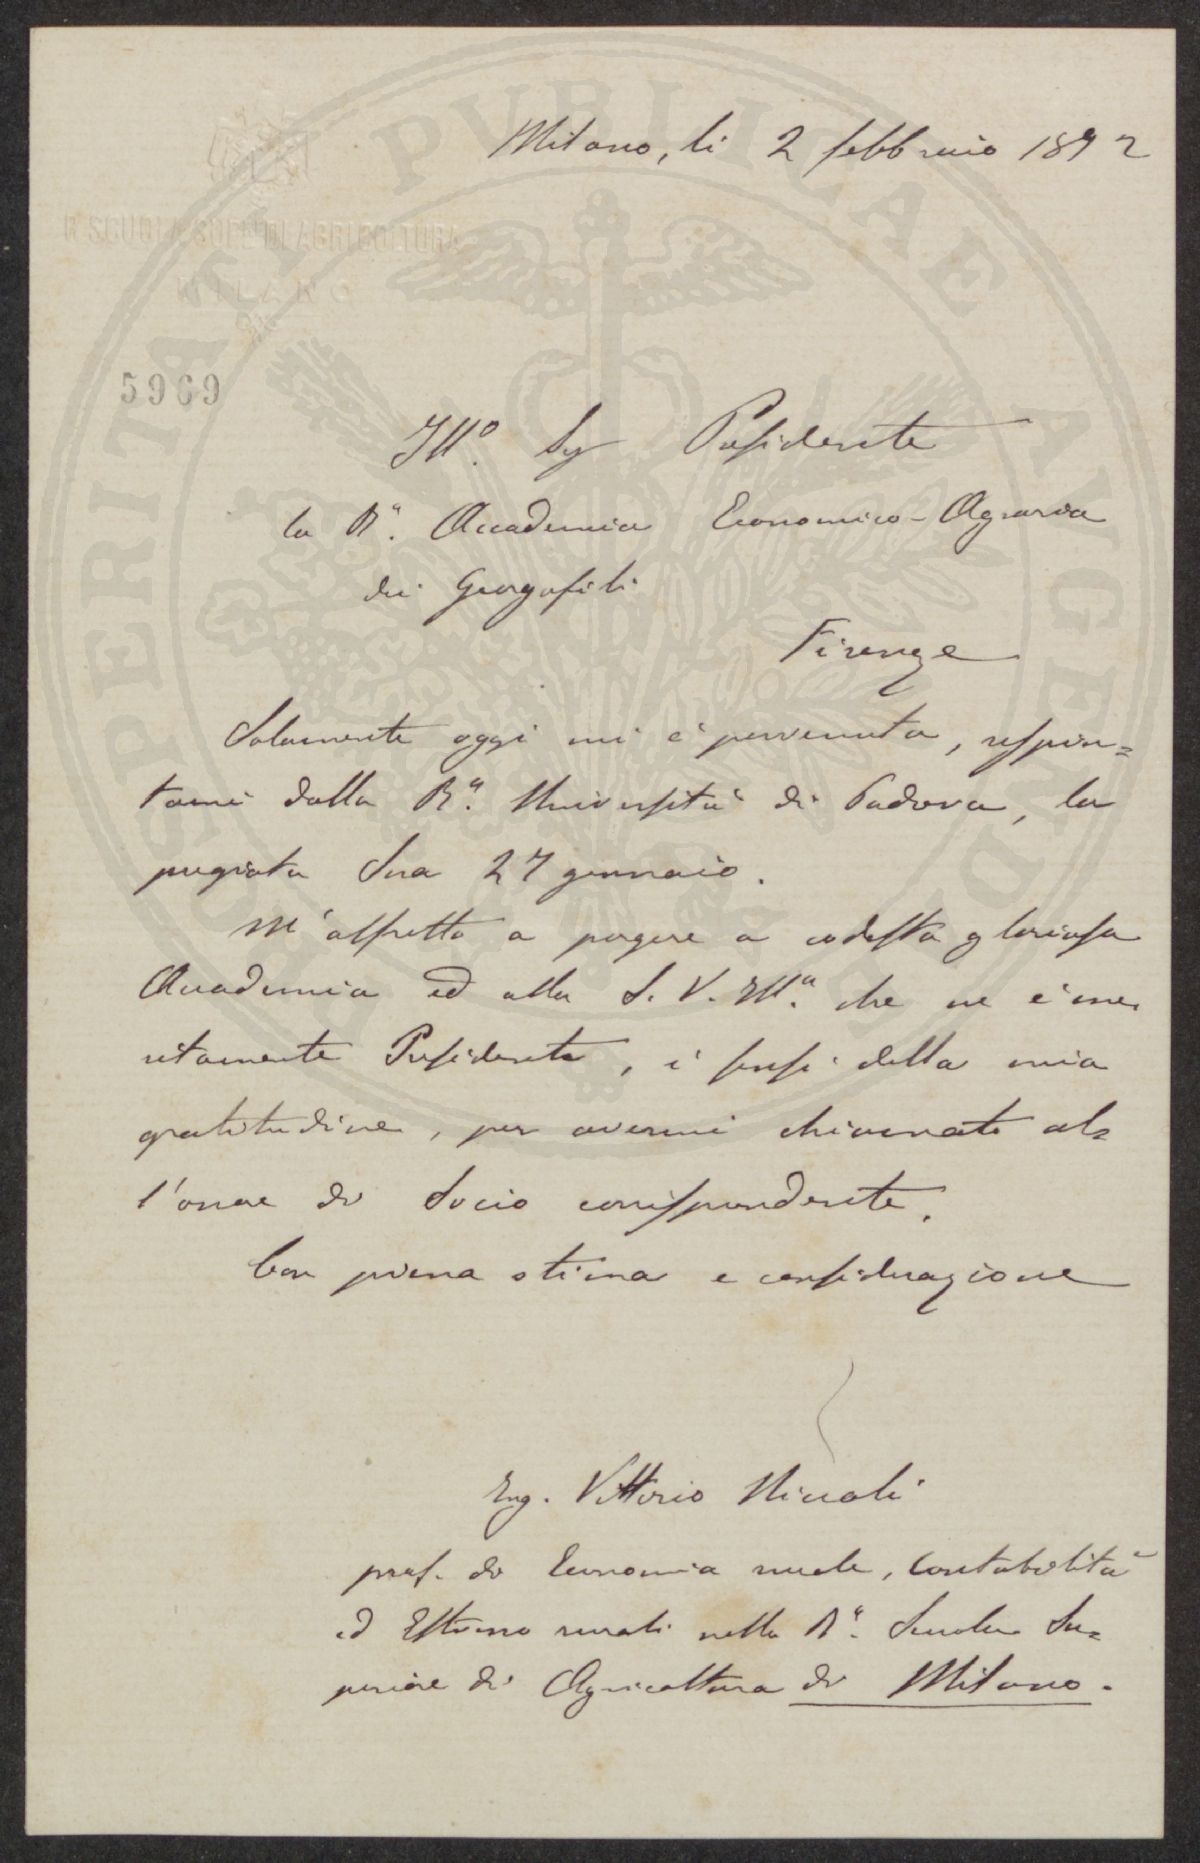 Milano, li 2 febbraio 1892
R. SCUOLA SUP. DI AGRICOLTURA
MILANO
5969
PROSPERITATI PUBLICAE AUGENDAE
Ill.º Sig Presidente
la R.ª Accademia Economico-Agraria
dei Georgofili
Firenze
Solamente oggi mi è pervenuta, respin=
tami dalla R.ª Università di Padova, la
pregiata Sua 27 gennaio.
M'affretto a porgere a codesta gloriosa
Accademia ed alla S. V. Ill.ª che ne è me
ritamente Presidente, i sensi della mia
gratitudine, per avermi chiamato al=
l'onore di Socio corrispondente.
Con piena stima e considerazione
Ing. Vittorio Niccoli
prof. di Economia rurale, Contabilità
ed Estimo rurali nella R.ª Scuola Su=
periore di Agricoltura di Milano.